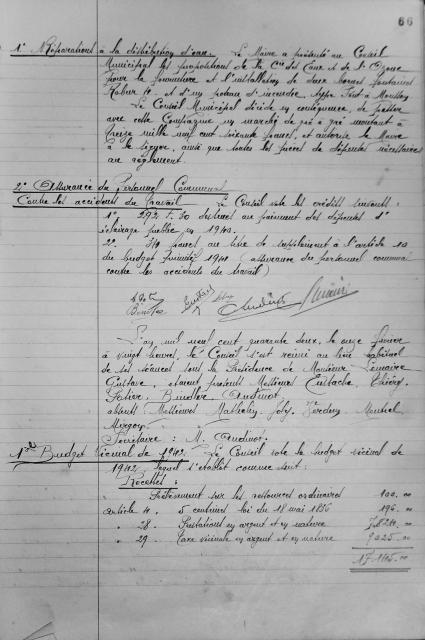 66
1° Réparations à la distribution d'eau. Le Maire a présenté au Conseil
Municipal les propositions de la Cie des Eaux et de l'Ozone
pour la fourniture et l'installation de deux bornes fontaines
et d'un poteau d'incendie, type Pont à Mousson
Le Conseil Municipal décide en conséquence, de passer
avec cette Compagnie un marché de gré à gré montant à
treize mille neuf cent soixante francs, et autorise le Maire
à le signer, ainsi que toutes les pièces de dépenses nécessaires
au règlement.
2° Assurance du Personnel Communal
Contre les accidents du travail Le Conseil vote les crédits suivants :
1° 292 f. 30 destinés au paiement des dépenses d'
éclairage public en 1940.
2° 314 francs au titre de supplément à l'article 10
du budget primitif 1941 (assurance du personnel communal
contre les accidents du travail)
L'an mil neuf cent quarante deux, le onze février
à vingt heures, le Conseil s'est réuni au lieu habituel
de ses séances sous la Présidence de Monsieur Lemaire
Gustave, étaient présents Messieurs Eustache, Thiéry,
Audinot.
absents Messieurs Mathelin, Joly,
Secrétaire : M. Audinot.
1° Budget vicinal de 1942. Le Conseil vote le budget vicinal de
1942 lequel s'établit comme suit :
Recettes :
Prélèvement sur les ressources ordinaires 100.00
article 4. 5 centimes loi du 18 mai 1836 196.00
" 28 Prestations en argent et en nature 7.824.00
" 29 Taxe vicinale en argent et en nature 9025.00
17.145.00